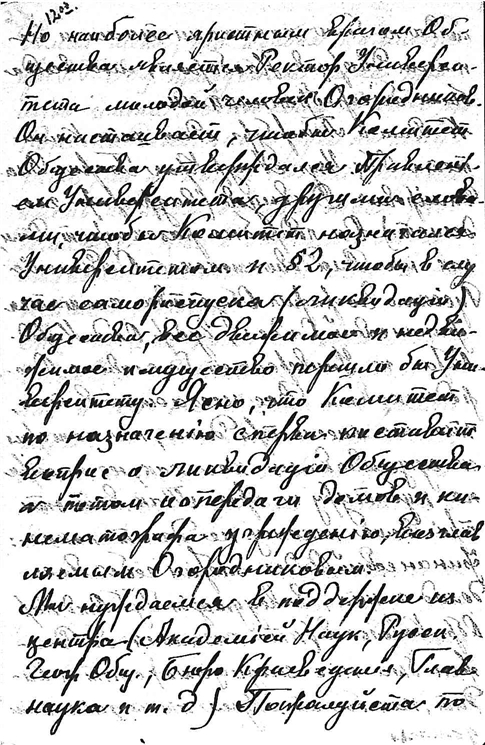 1202.
Но наиболее яростным врагом Об-
щества является Ректор Универси-
тета молодой человек Огородников.
Он настаивает, чтобы Комитет
Общества утверждался Правлени-
ем Университета другими слова-
ми, чтобы Комитет назначался
Университетом и §2, чтобы в слу
чае самороспуска (ликвидации)
Общества, все движимое и недви-
жимое имущество перешло бы Уни-
верситету. Ясно, что Комитет
по назначению сперва поставит
вопрос о ликвидации Общества
а потом и о передачи домов и ки-
нематографа учреждению, возглав
ляемым Огородниковым.
Мы нуждаемся в поддержке из
центра (Академией Наук, Русск
Геогр Общ., Бюро Краеведения, Глав
наука и т. д) Пожалуйста по